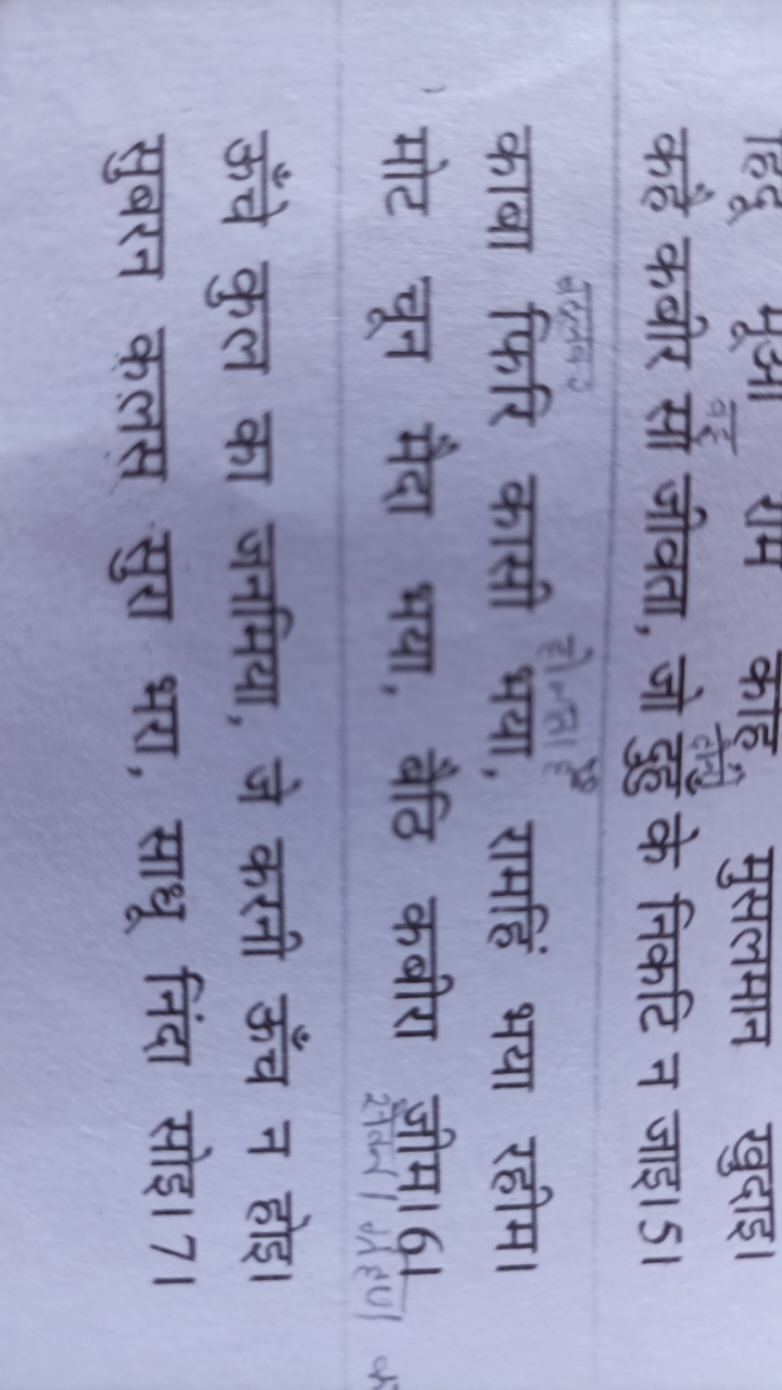 हिंदू मूआ राम कहि मुसलमान खुदाइ।
वह दोनों
कहै कबीर सो जीवता, जो दुहुँ के निकटि न जाइ।5।
होता है
काबा फिरि कासी भया, रामहिं भया रहीम।
मोट चून मैदा भया, बैठि कबीरा जीम।6।
ऊँचे कुल का जनमिया, जे करनी ऊँच न होइ।
सुबरन कलस सुरा भरा, साधू निंदा सोइ।7।